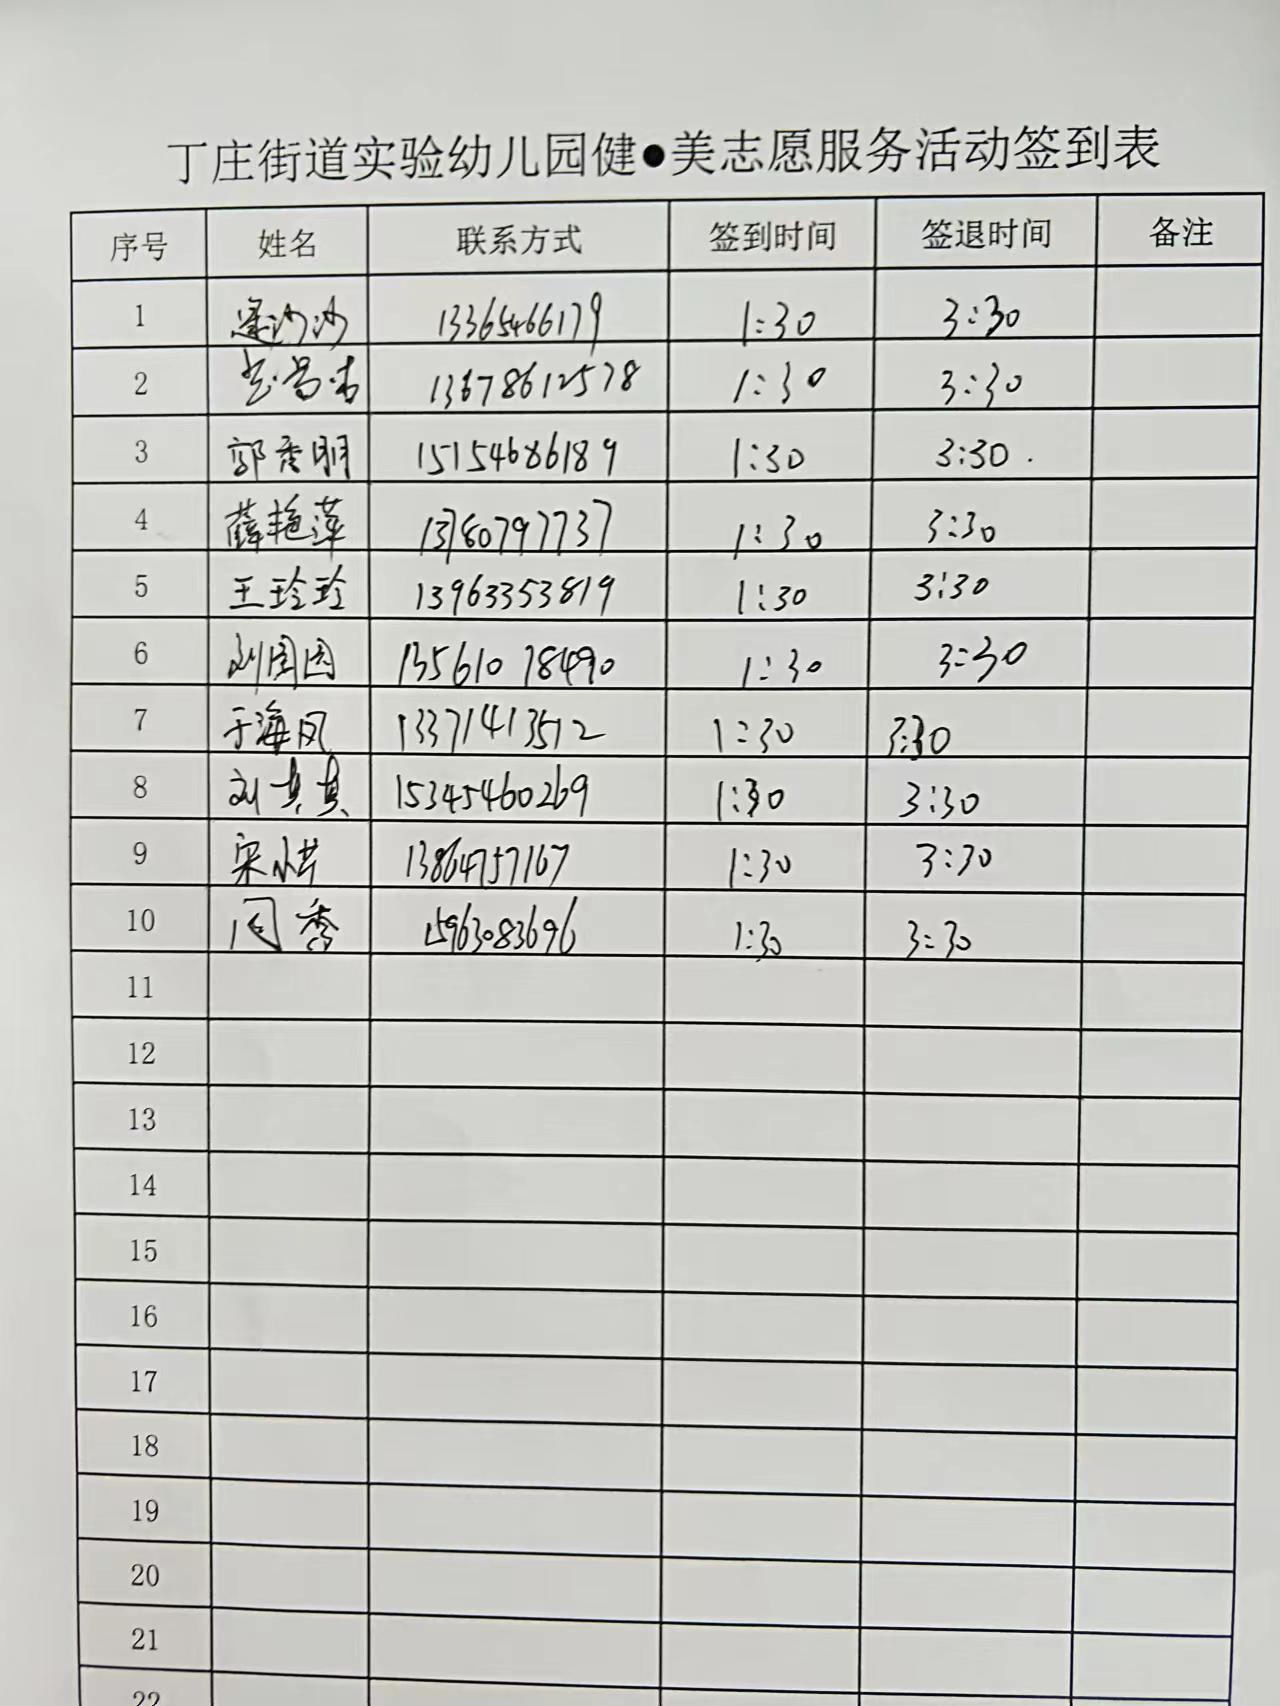 丁庄街道实验幼儿园健●美志愿服务活动签到表
序号 姓名 联系方式 签到时间 签退时间 备注
1 沙沙 13365466179 1:30 3:30
2 13678612578 1:30 3:30
3 郭秀明 15154686189 1:30 3:30.
4 薛艳萍 13780797737 1:30 3:30
5 王玲玲 13963353819 1:30 3:30
6 刘园园 13561078490 1:30 3:30
7 于海凤 13371413512 1:30 3:30
8 刘真真 15345460269 1:30 3:30
9 宋 13864757167 1:30 3:30
10 闫秀 15963083696 1:30 3:30
11
12
13
14
15
16
17
18
19
20
21
22